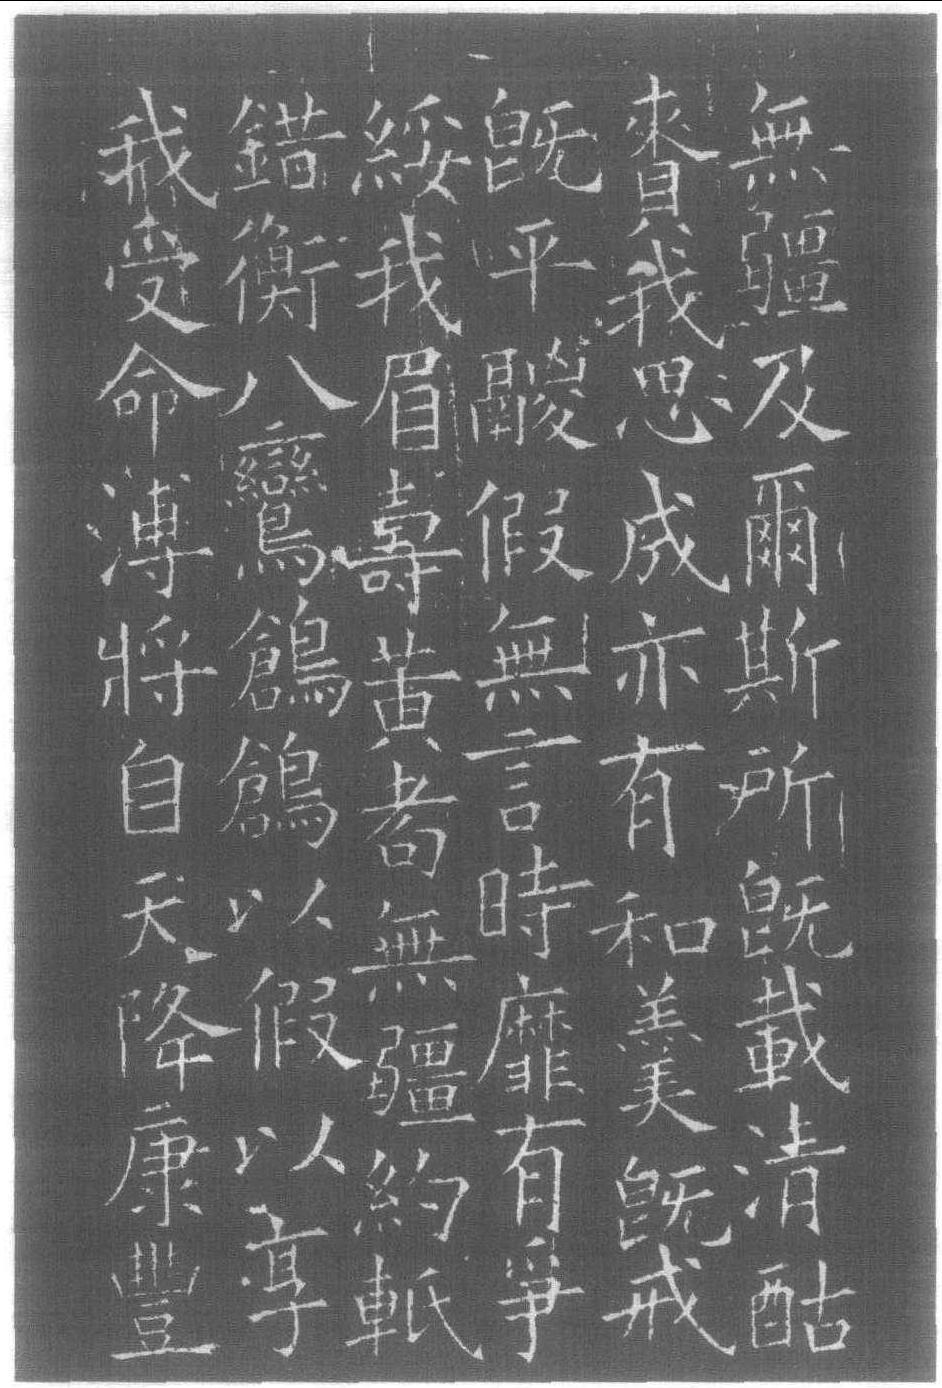 無疆及爾斯所既載清酤
賚我思成亦有和羹既戒
既平鬷假無言時靡有爭
綏我眉壽黃耇無疆約軝
錯衡八鸞鶬鶬以假以享
我受命溥將自天降康豐